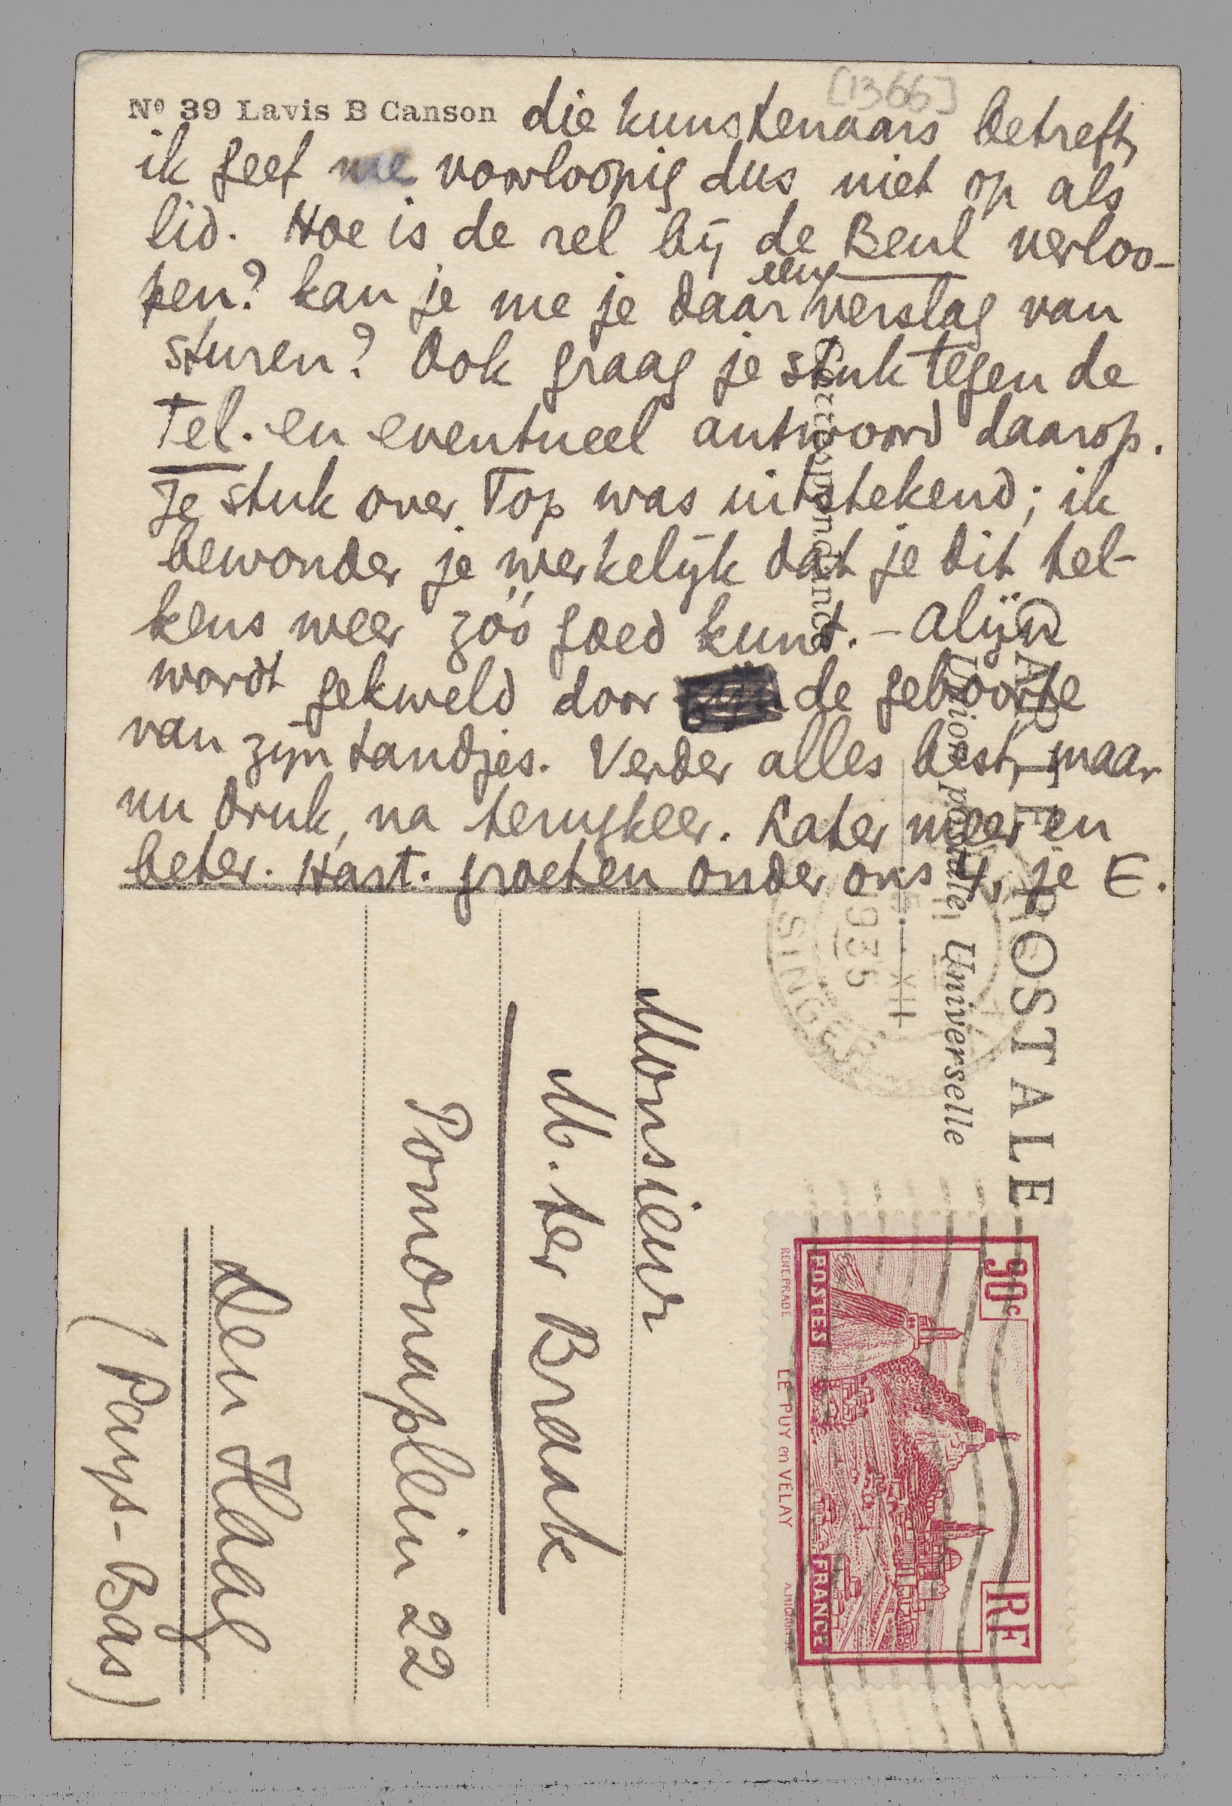 [1366]
Nº 39 Lavis B Canson
die kunstenaars betreft,
ik geef me voorloopig dus niet op als
lid. Hoe is de rel bij de Beul verloo-
pen? kan je me je daar een verslag van
sturen? Ook graag je stuk tegen de
Tel. en eventueel antwoord daarop.
Je stuk over Top was uitstekend; ik
bewonder je werkelijk dat je dit tel-
kens weer zóó goed kunt. – Alijn
wordt gekweld door de geboorte
van zijn tandjes. Verder alles best, maar
nu druk, na terugkeer. Later meer en
beter. Hart. groeten onder ons 4, je E.
CARTE POSTALE
Union postale Universelle
Correspondance
XII
1935
SINGER
90c
RF
POSTES
FRANCE
RENE PRADE
LE PUY en VELAY
Monsieur
M. ter Braak
Pomonaplein 22
Den Haag
(Pays-Bas)